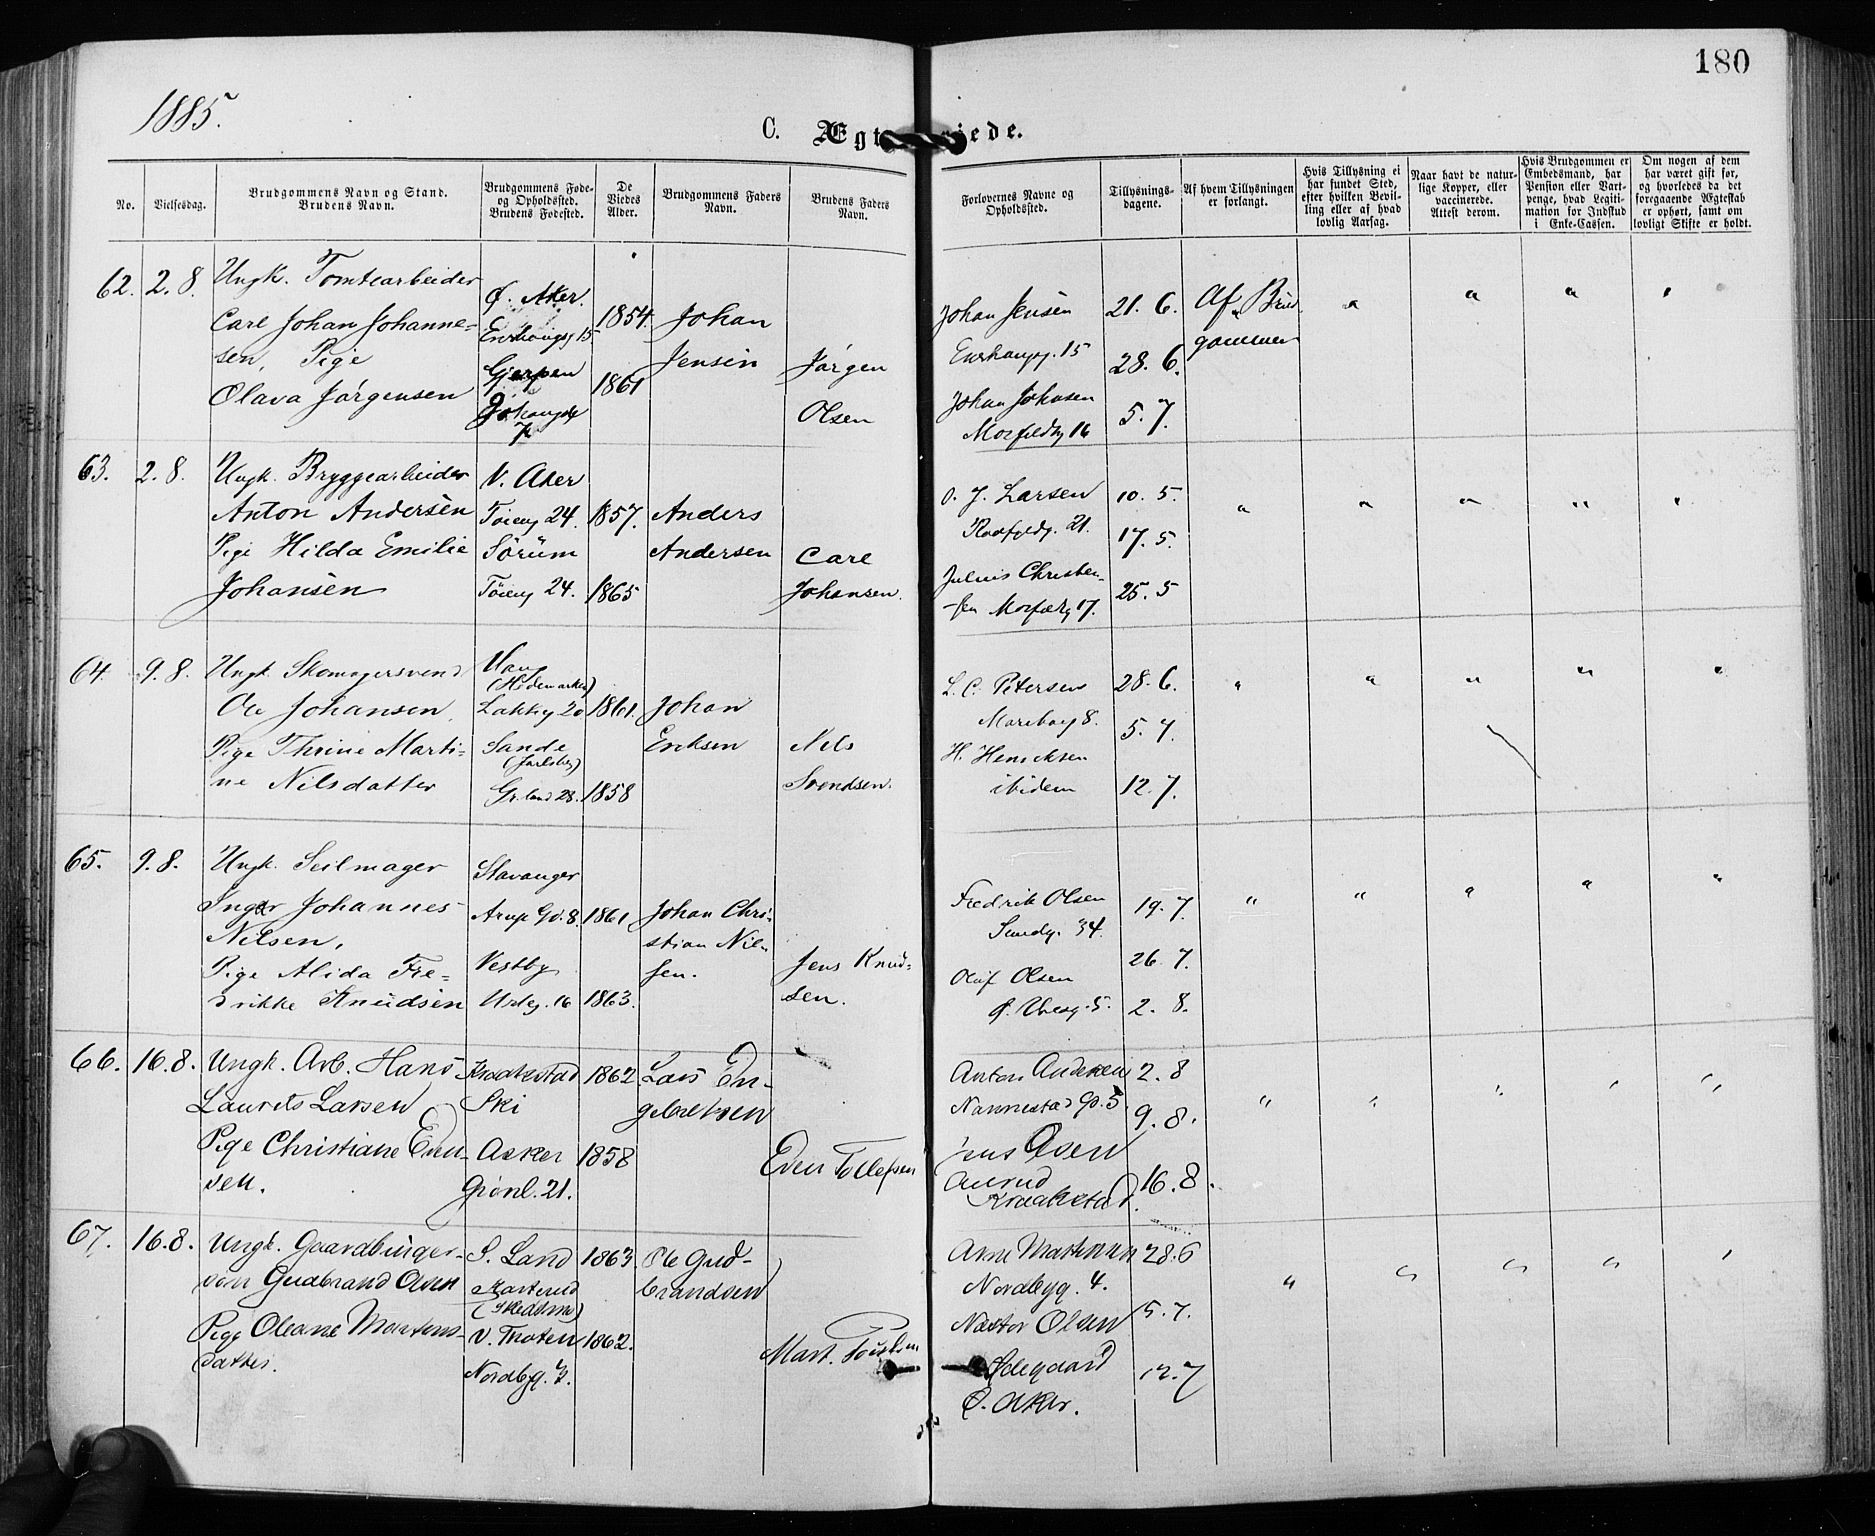 180
1885.
C. Ægt jede.
No.
Vielsesdag.
Brudgommens Navn og Stand.
Brudens Navn.
Brudgommens Føde-
og Opholdssted.
Brudens Fødested.
De
Viedes
Alder.
Brudgommens Faders
Navn.
Brudens Faders
Navn.
Forlovernes Navne og
Opholdssted.
Tillysnings-
dagene.
Af hvem Tillysningen
er forlangt.
Hvis Tillysning ei
har fundet Sted,
efter hvilken Bevil-
ling eller af hvad
lovlig Aarsag.
Naar havt de natur-
lige Kopper, eller
vaccinerede.
Attest derom.
Hvis Brudgommen er
Embedsmand, har
Pension eller Vart-
penge, hvad Legiti-
mation for Indskud
i Enke-Cassen.
Om nogen af dem
har været gift før,
og hvorledes da det
foregaaende Ægteskab
er ophørt, samt om
lovligt Skifte er holdt.
62. 2. 8.
Ungk. Tomtearbeider
Carl Johan Johanne-
sen, Pige
Olava Jørgensen
Ø. Aker.
Enerhaugg 15
Gjerpen
7
1854.
1861
Johan
Jensen
Jørgen
Olsen
Johan Jensen
Enerhaugg. 15
Johan Johnsen
16
21. 6.
28. 6.
5. 7.
Af Brud
gommen
" " " "
63. 2. 8.
Ungk. Bryggearbeider
Anton Andersen
Pige Hilda Emilie
Johansen
V. Aker
Tøieng 24.
Sørum
Tøieng 24.
1857.
1865
Anders
Andersen
Carl
Johansen.
O. J. Larsen
21.
Julius Christen-
sen 17.
10. 5.
17. 5.
25. 5
" " " " "
64 9. 8.
Ungk. Skomagersvend
Ole Johansen.
Pige Thrine Marti-
ne Nilsdatter
Vang
(Hedemarken)
Lakkeg 20
Sande
(Jarlsberg)
Gr. land 28.
1861.
1858
Johan
Eriksen
Nils
Svendsen.
L. C. Petersen
8.
H. Henriksen
ibidem
28. 6.
5. 7.
12. 7.
" " " " "
65. 9. 8.
Ungk. Seilmager
Inger Johannes
Nilsen,
Pige Alida Fre-
drikke Knudsen
Stavanger
Arups Gd. 8.
Vestby
Urteg. 16
1861
1863.
Johan Chri-
stian Nil-
sen.
Jens Knud-
sen.
Fredrik Olsen
34.
Oluf Olsen
5.
19. 7.
26. 7.
2. 8.
" " " " "
66. 16. 8.
Ungk. Arb. Hans
Laurits Larsen
Pige Christiane Even-
sen.
Kraakstad
Ski
Asker
Grønl. 21.
1862
1858
Lars En-
gebretsen
Even Tollefsen
Anton Andersen
Nannestad Gd. 5.
Jens Olsen
Kraakstad.
2. 8
9. 8.
16. 8.
" " " " "
67. 16. 8.
Ungk. Gaardbruger-
søn Gudbrand Olsen
Pige Oleane Martens-
datter.
S. Land
(Skedsmo)
V. Thoten
Nordbyg. 4.
1863.
1862.
Ole Gud-
brandsen
Mart.
Arne Martinsen
Nordbyg. 4.
Nestor Olsen
Ødegaard
Ø. Aker.
28. 6
5. 7.
12. 7
" " " " "